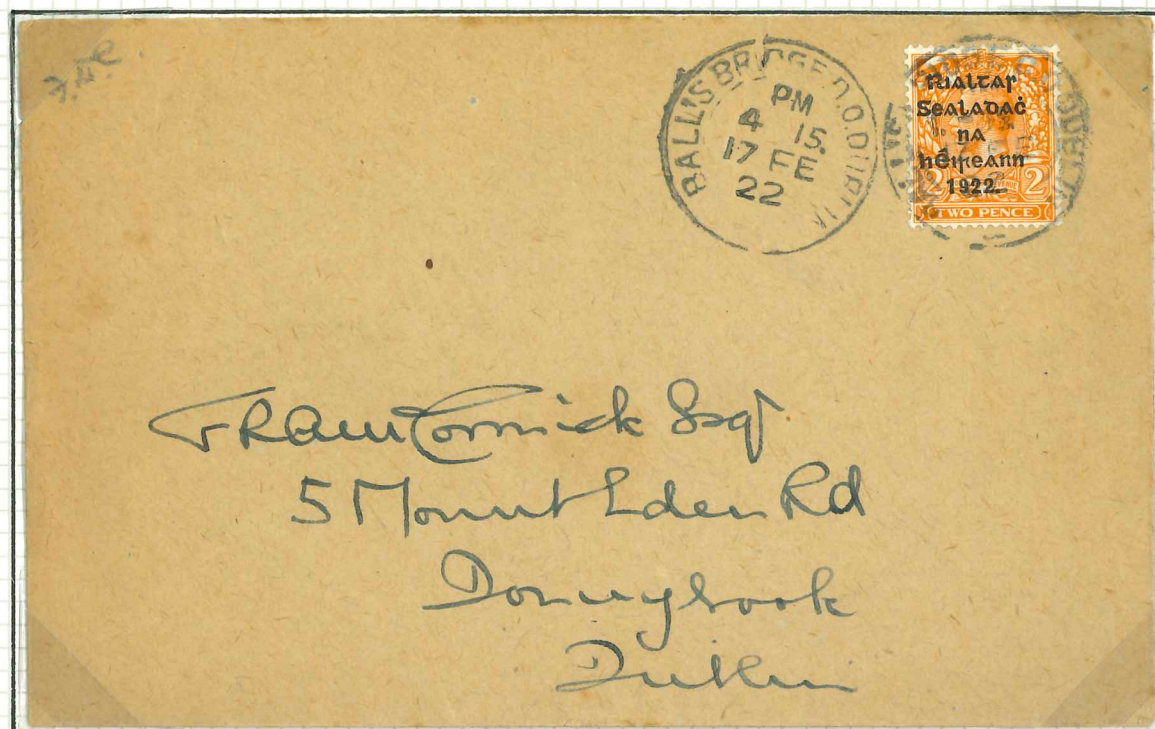 BALL'S BRIDGE D.O. DUBLIN
PM
4 15.
17 FE
22
Rialtas
Sealadaċ
na
hÉireann
1922.
2 2
TWO PENCE
Cormick Esqr
5 Mount Eden Rd
Donnybrook
Dublin